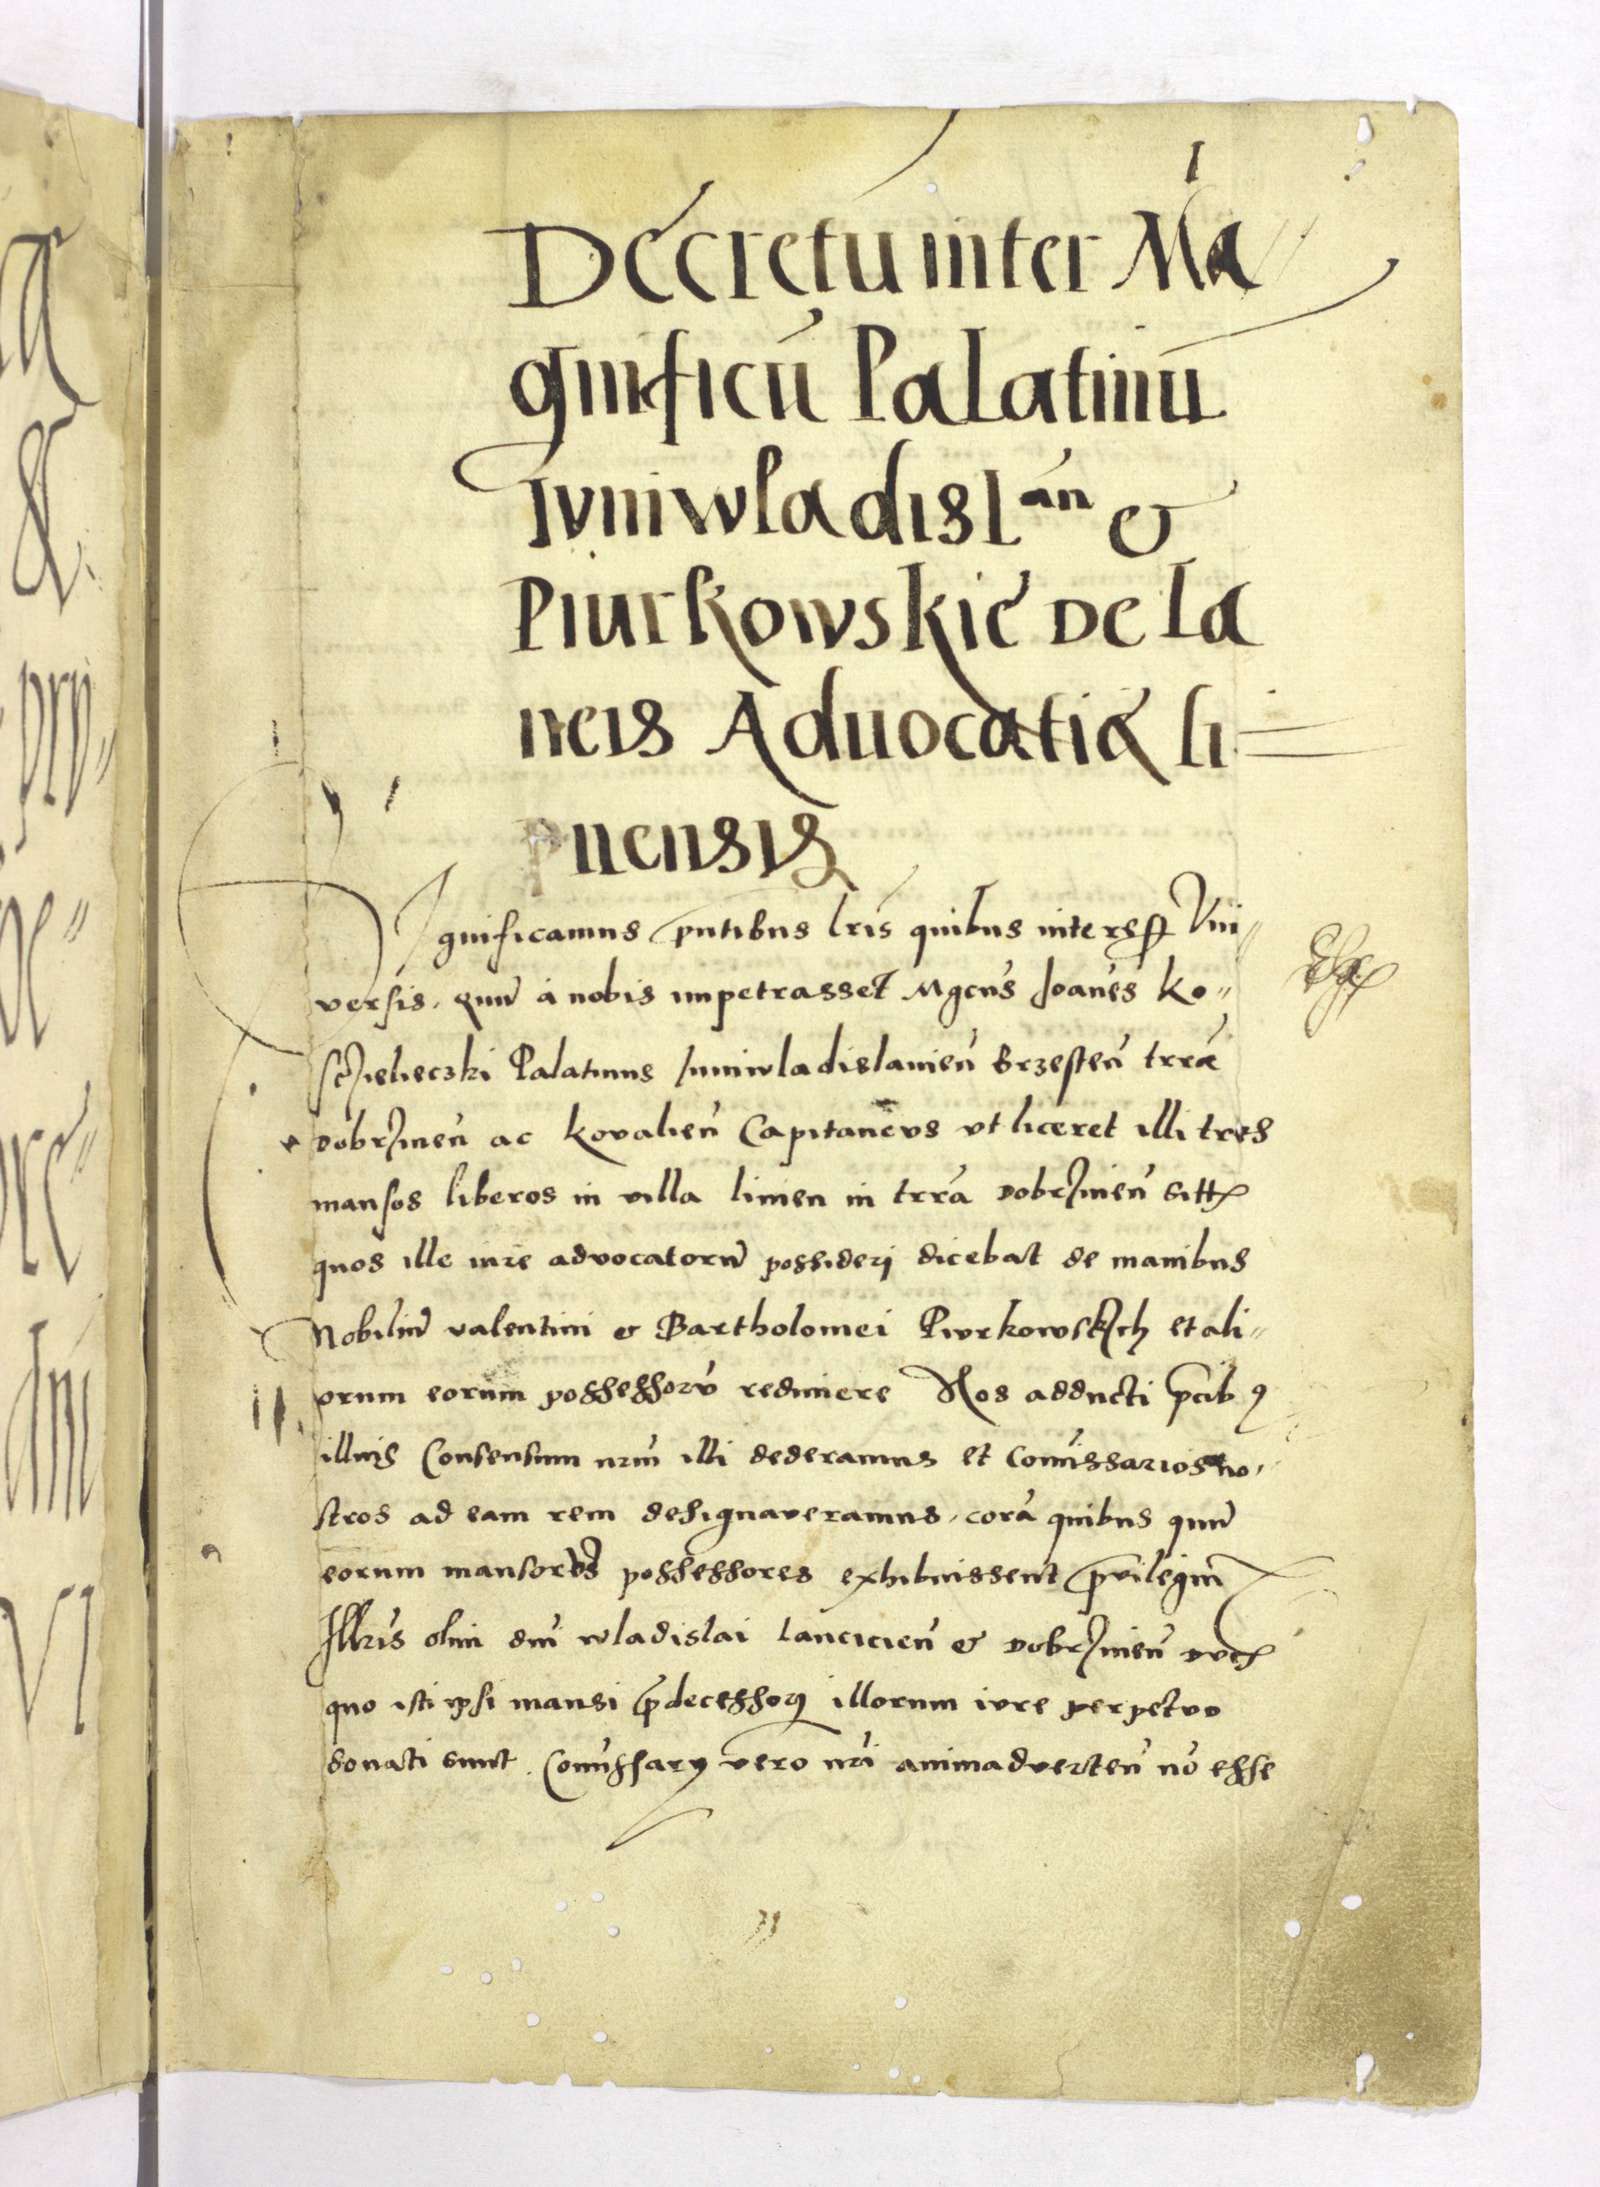 1
Decretu inter Ma
gnificu Palatinu
Juniwladislan &
Piurkowskie De la
neis Aduocatiæ li
pnensis
Significamus pntibus lris quibus interest Vni
versis. Quum a nobis impetrasset Mgcus Joanes Ko
scieleczki Palatinus Juniwladislauien Brzesten trræ
Dobrzinen ac Kovalien Capitaneus vt liceret illi tres
mansos liberos in villa linien in trra Dobrzinen sitt
quos ille iure advocatorum possideri dicebat de manibus
Nobilium valentini & Bartholomei Piurkowskich et ali
orum eorum possessoru redimere Nos adducti pcibus
illius Consensum nrm illi dederamus et Comissarios no
stros ad eam rem designaveramus, cora quibus quum
eorum mansorum possessores exhibuissent privilegium
Illris olim dni wladislai lancicien & Dobrzinen Duc
quo isti ipsi mansi predecessorum illorum iure perpetuo
donati sunt. Comissary vero nri animadverten no esse